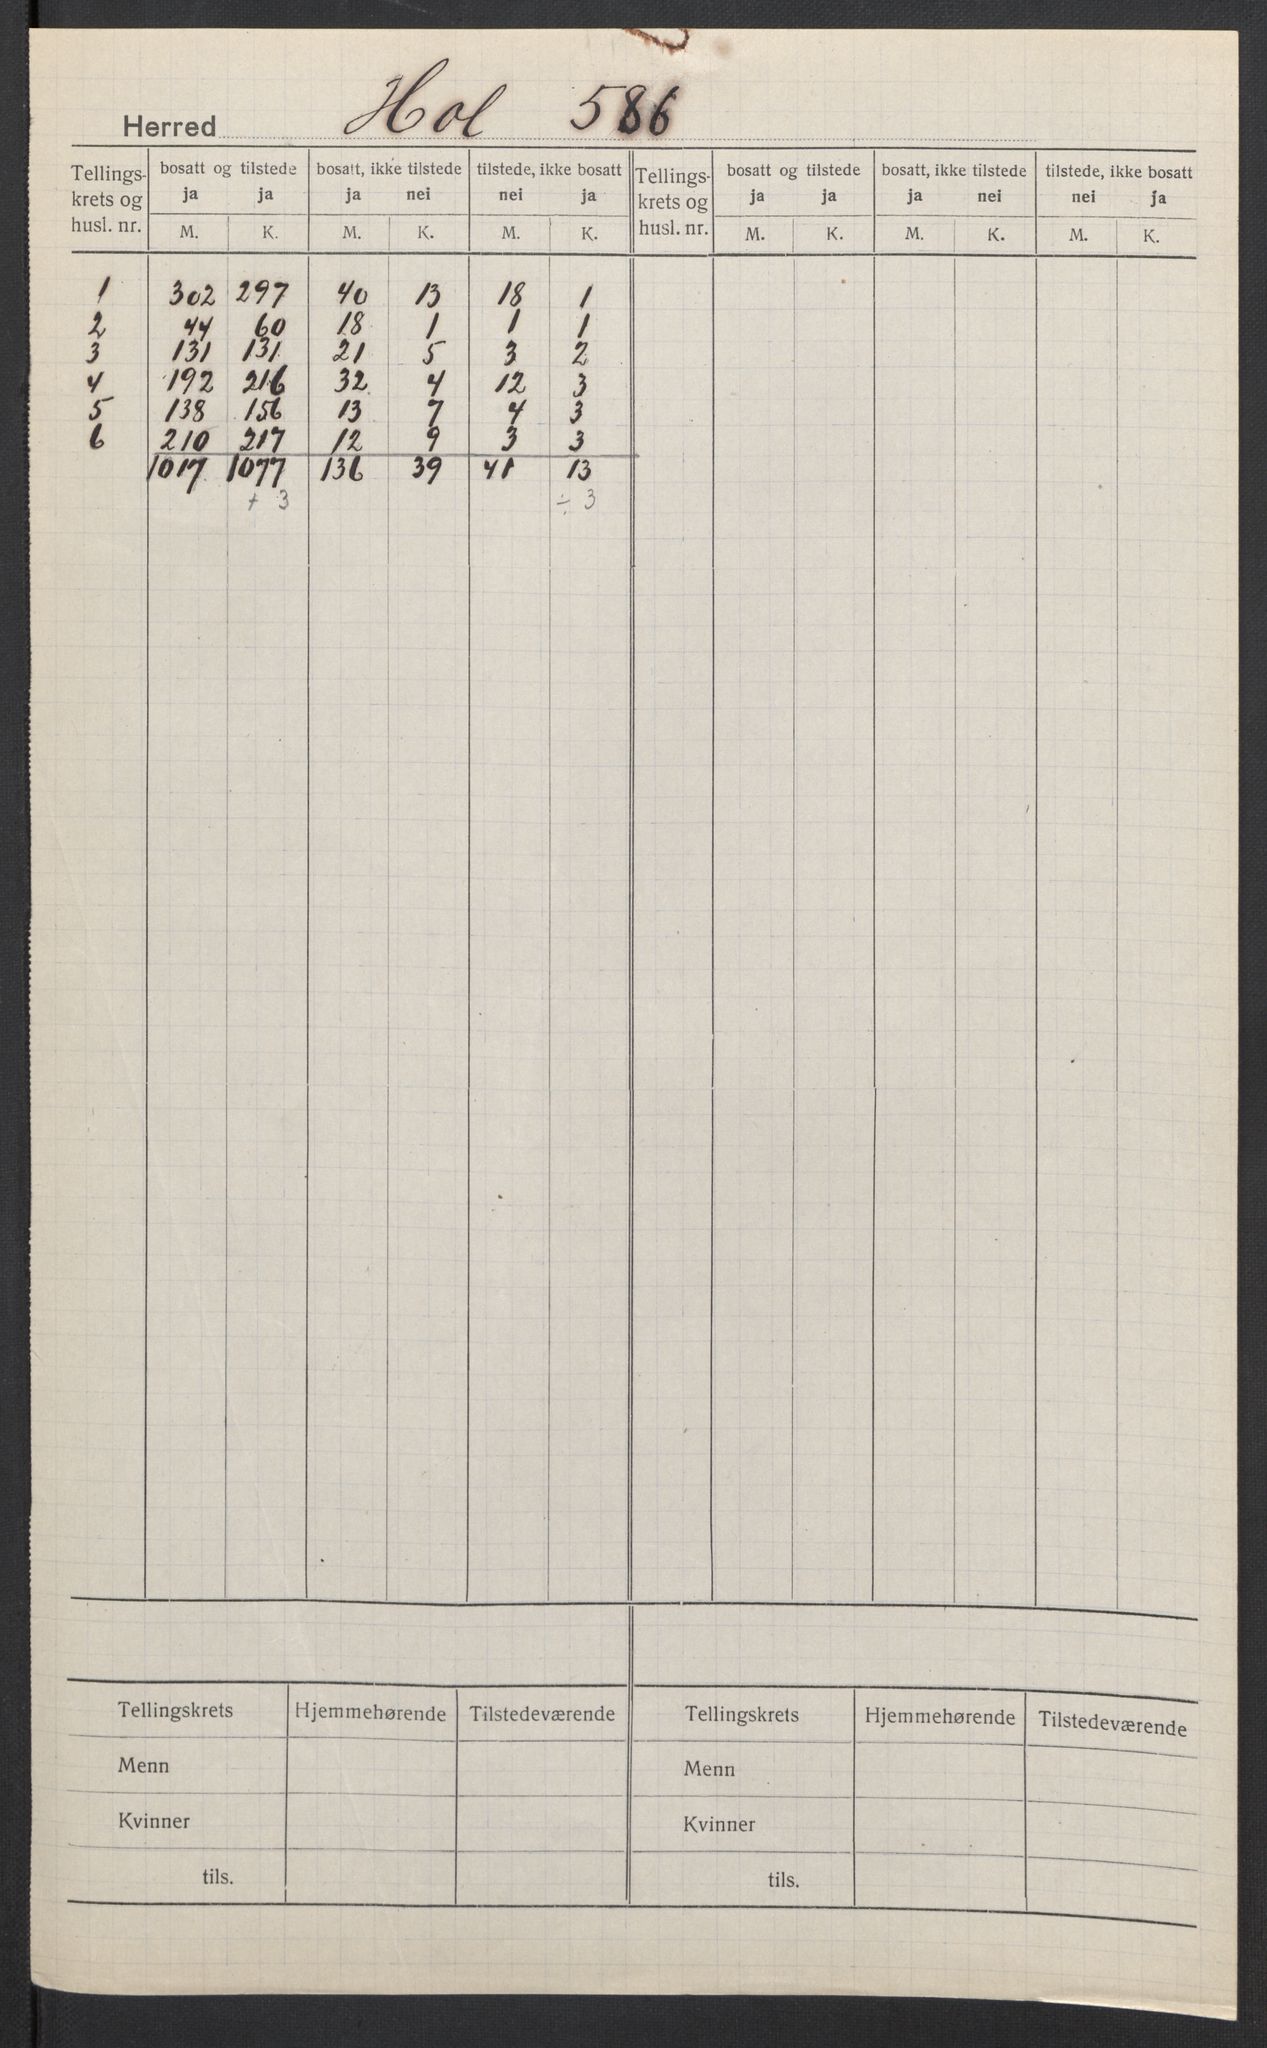 Herred Hol 586
Tellings- krets og husl. nr. | bosatt og tilstede | bosatt, ikke tilstede | tilstede, ikke bosatt | Tellings- krets og husl. nr. | bosatt og tilstede | bosatt, ikke tilstede | tilstede, ikke bosatt
ja ja | ja nei | nei ja | ja ja | ja nei | nei ja
M. K. M. K. M. K. M. K. M. K. M. K.
1 302 297 40 13 18 1
2 44 60 18 1 1 1
3 131 131 21 5 3 2
4 192 216 32 4 12 3
5 138 156 13 7 4 3
6 210 217 12 9 3 3
1017 1077 136 39 41 13
+ 3 ÷ 3
Tellingskrets Hjemmehørende Tilstedeværende Tellingskrets Hjemmehørende Tilstedeværende
Menn Menn
Kvinner Kvinner
tils. tils.